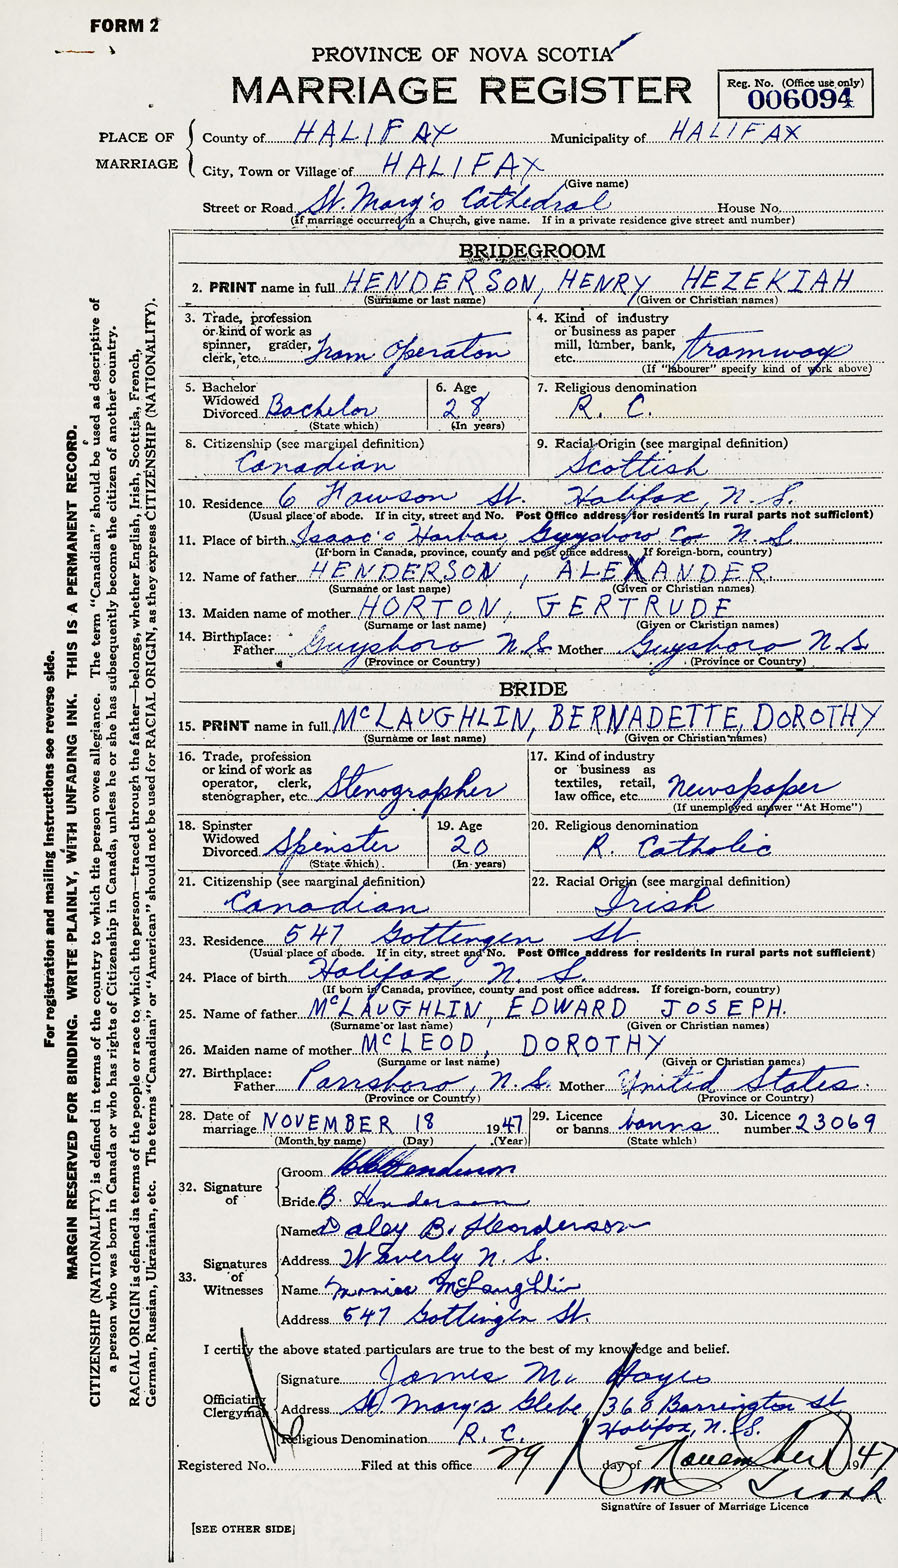 FORM 2
PROVINCE OF NOVA SCOTIA
MARRIAGE REGISTER
Reg. No. (Office use only)
006094
PLACE OF MARRIAGE
County of HALIFAX Municipality of HALIFAX
City, Town or Village of HALIFAX
(Give name)
Street or Road St. Mary's Cathedral House No.
(If marriage occurred in a Church, give name. If in a private residence give street and number)
BRIDEGROOM
2. PRINT name in full HENDERSON, HENRY HEZEKIAH
(Surname or last name) (Given or Christian names)
3. Trade, profession or kind of work as spinner, grader, clerk, etc. Tram Operator
4. Kind of industry or business as paper mill, lumber, bank, etc. tramway
(If "labourer" specify kind of work above)
5. Bachelor Widowed Divorced Bachelor
(State which)
6. Age 28
(In years)
7. Religious denomination R. C.
8. Citizenship (see marginal definition) Canadian
9. Racial Origin (see marginal definition) Scottish
10. Residence 6 Fawson St. Halifax, N.S.
(Usual place of abode. If in city, street and No. Post Office address for residents in rural parts not sufficient)
11. Place of birth Isaac's Harbor Guysboro Co N.S
(If born in Canada, province, county and post office address. If foreign-born, country)
12. Name of father HENDERSON, ALEXANDER.
(Surname or last name) (Given or Christian names)
13. Maiden name of mother HORTON, GERTRUDE
(Surname or last name) (Given or Christian names)
14. Birthplace: Father Guysboro N.S. Mother Guysboro N.S.
(Province or Country) (Province or Country)
BRIDE
15. PRINT name in full McLAUGHLIN, BERNADETTE, DOROTHY
(Surname or last name) (Given or Christian names)
16. Trade, profession or kind of work as operator, clerk, stenographer, etc. Stenographer
17. Kind of industry or business as textiles, retail, law office, etc. Newspaper
(If unemployed answer "At Home")
18. Spinster Widowed Divorced Spinster
(State which)
19. Age 20
(In years)
20. Religious denomination R. Catholic
21. Citizenship (see marginal definition) Canadian
22. Racial Origin (see marginal definition) Irish
23. Residence 547 Gottingen St.
(Usual place of abode. If in city, street and No. Post Office address for residents in rural parts not sufficient)
24. Place of birth Halifax, N. S.
(If born in Canada, province, county and post office address. If foreign-born, country)
25. Name of father McLAUGHLIN, EDWARD JOSEPH.
(Surname or last name) (Given or Christian names)
26. Maiden name of mother McLEOD, DOROTHY
(Surname or last name) (Given or Christian names)
27. Birthplace: Father Parrsboro, N.S. Mother United States.
(Province or Country) (Province or Country)
28. Date of marriage NOVEMBER 18 1947
(Month by name) (Day) (Year)
29. Licence or banns banns
(State which)
30. Licence number 23069
32. Signature of
Groom Henderson
Bride B. Henderson
33. Signatures of Witnesses
Name Daley B. Henderson
Address Waverly N. S.
Name Monica McLaughlin
Address 547 Gottingen St.
I certify the above stated particulars are true to the best of my knowledge and belief.
Officiating Clergyman
Signature James M. Hayes
Address St. Mary's Glebe 368 Barrington St
Halifax, N.S.
Religious Denomination R. C.
Registered No. Filed at this office 29 day of November 1947
Signature of Issuer of Marriage Licence
[SEE OTHER SIDE]
For registration and mailing instructions see reverse side.
MARGIN RESERVED FOR BINDING. WRITE PLAINLY, WITH UNFADING INK. THIS IS A PERMANENT RECORD.
CITIZENSHIP (NATIONALITY) is defined in terms of the country to which the person owes allegiance. The term "Canadian" should be used as descriptive of
a person who was born in Canada or who has rights of Citizenship in Canada, unless he or she has subsequently become the citizen of another country.
RACIAL ORIGIN is defined in terms of the people or race to which the person—traced through the father—belongs, whether English, Irish, Scottish, French,
German, Russian, Ukrainian, etc. The terms "Canadian" or "American" should not be used for RACIAL ORIGIN, as they express CITIZENSHIP (NATIONALITY).